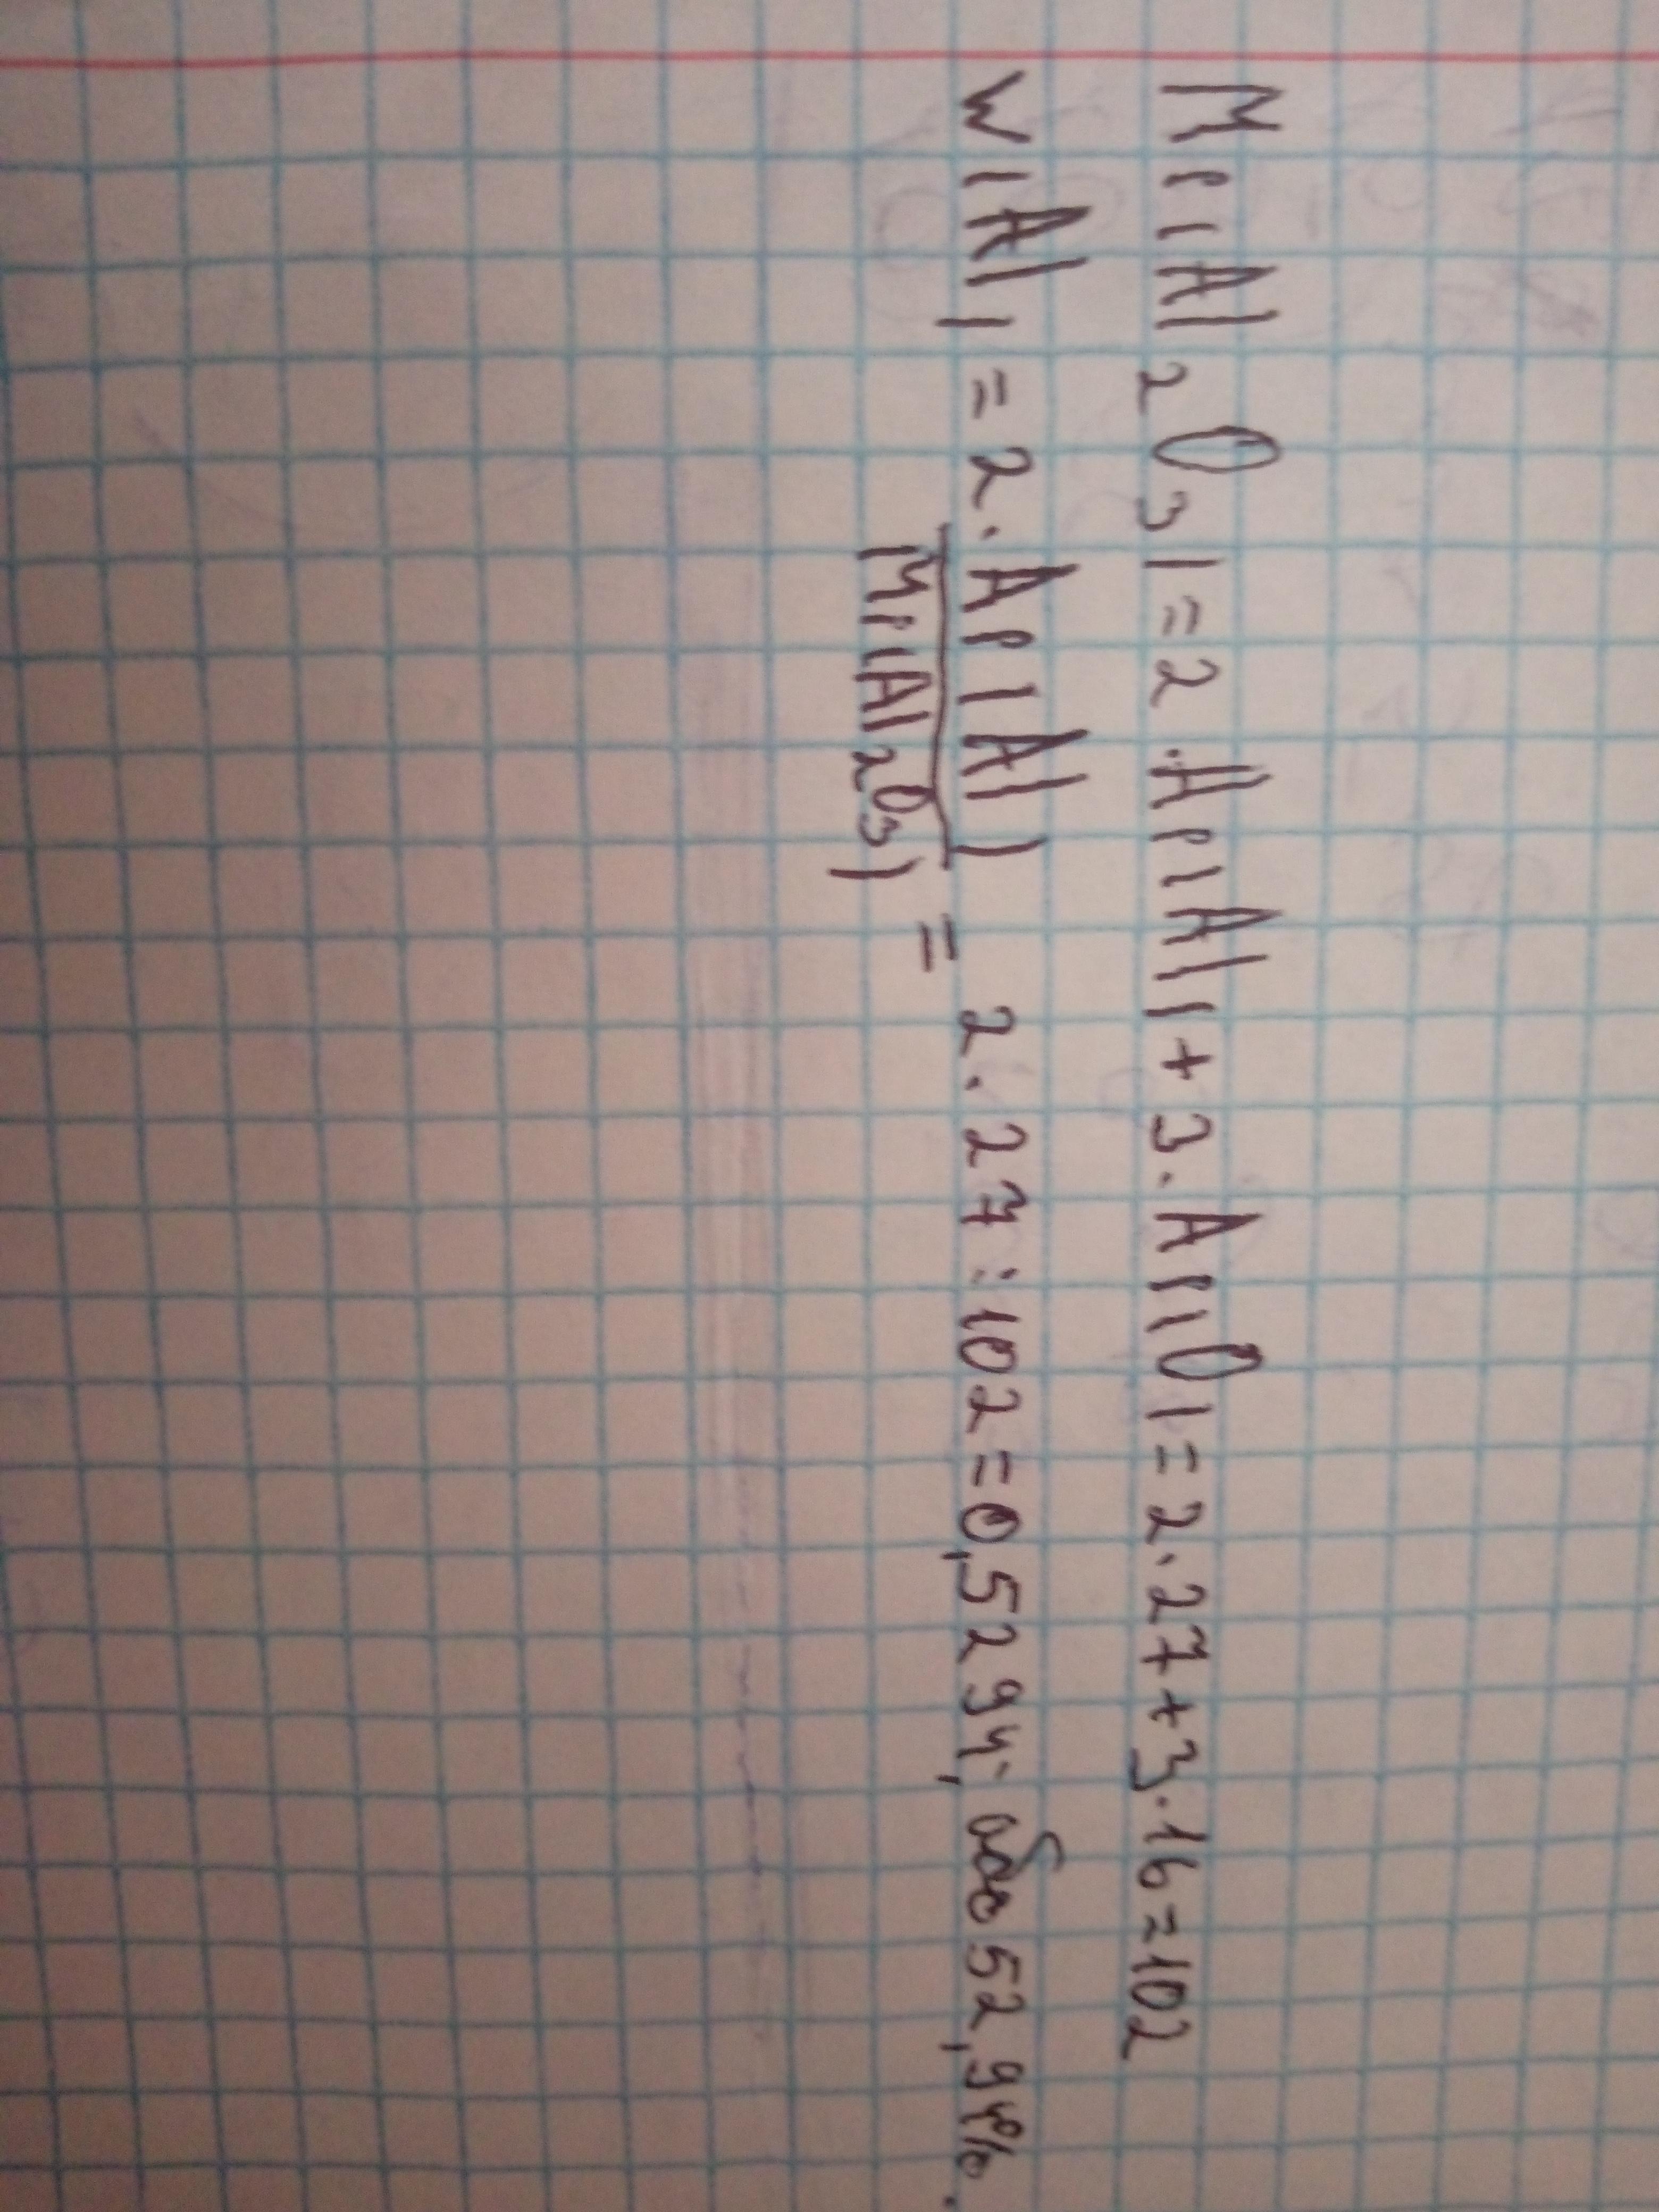 Mr(Al2O3)=2·Ar(Al)+3·Ar(O)=2·27+3·16=102
w(Al)=2·Ar(Al)/Mr(Al2O3)=2·27:102=0,5294; або 52,94%.